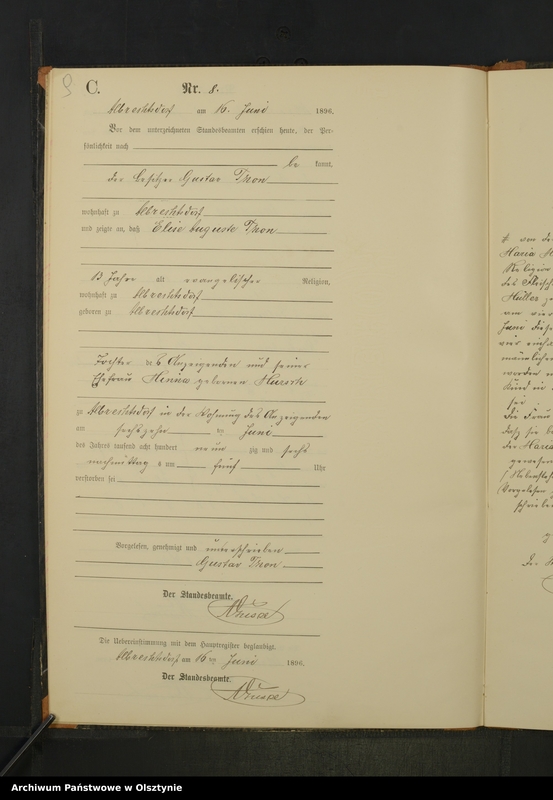 9
C.
Nr. 8.
Albrechtsdorf am 16. Juni 1896.
Vor dem unterzeichneten Standesbeamten erschien heute, der Per-
sönlichkeit nach
be kannt,
der Besitzer Gustav Thon
wohnhaft zu Albrechtsdorf
und zeigte an, daß Elise Auguste Thon
13 Jahre alt evangelischer Religion,
wohnhaft zu Albrechtsdorf
geboren zu Albrechtsdorf
Tochter des Anzeigenden und seiner
Ehefrau Minna geborenen
zu Albrechtsdorf in der Wohnung des Anzeigenden
am sechszehn ten Juni
des Jahres tausend acht hundert neun zig und sechs
nachmittags um fünf Uhr
verstorben sei
Vorgelesen, genehmigt und unterschrieben
Gustav Thon
Der Standesbeamte.
Die Uebereinstimmung mit dem Hauptregister beglaubigt.
Albrechtsdorf am 16 ten Juni 1896.
Der Standesbeamte.
Maria
Religion
Müller
am vier
Juni diese
worden
Kind
sei
Die Frau
daß sie be
der Maria
gewesen
Vorgelesen
schrieben
Archiwum Państwowe w Olsztynie